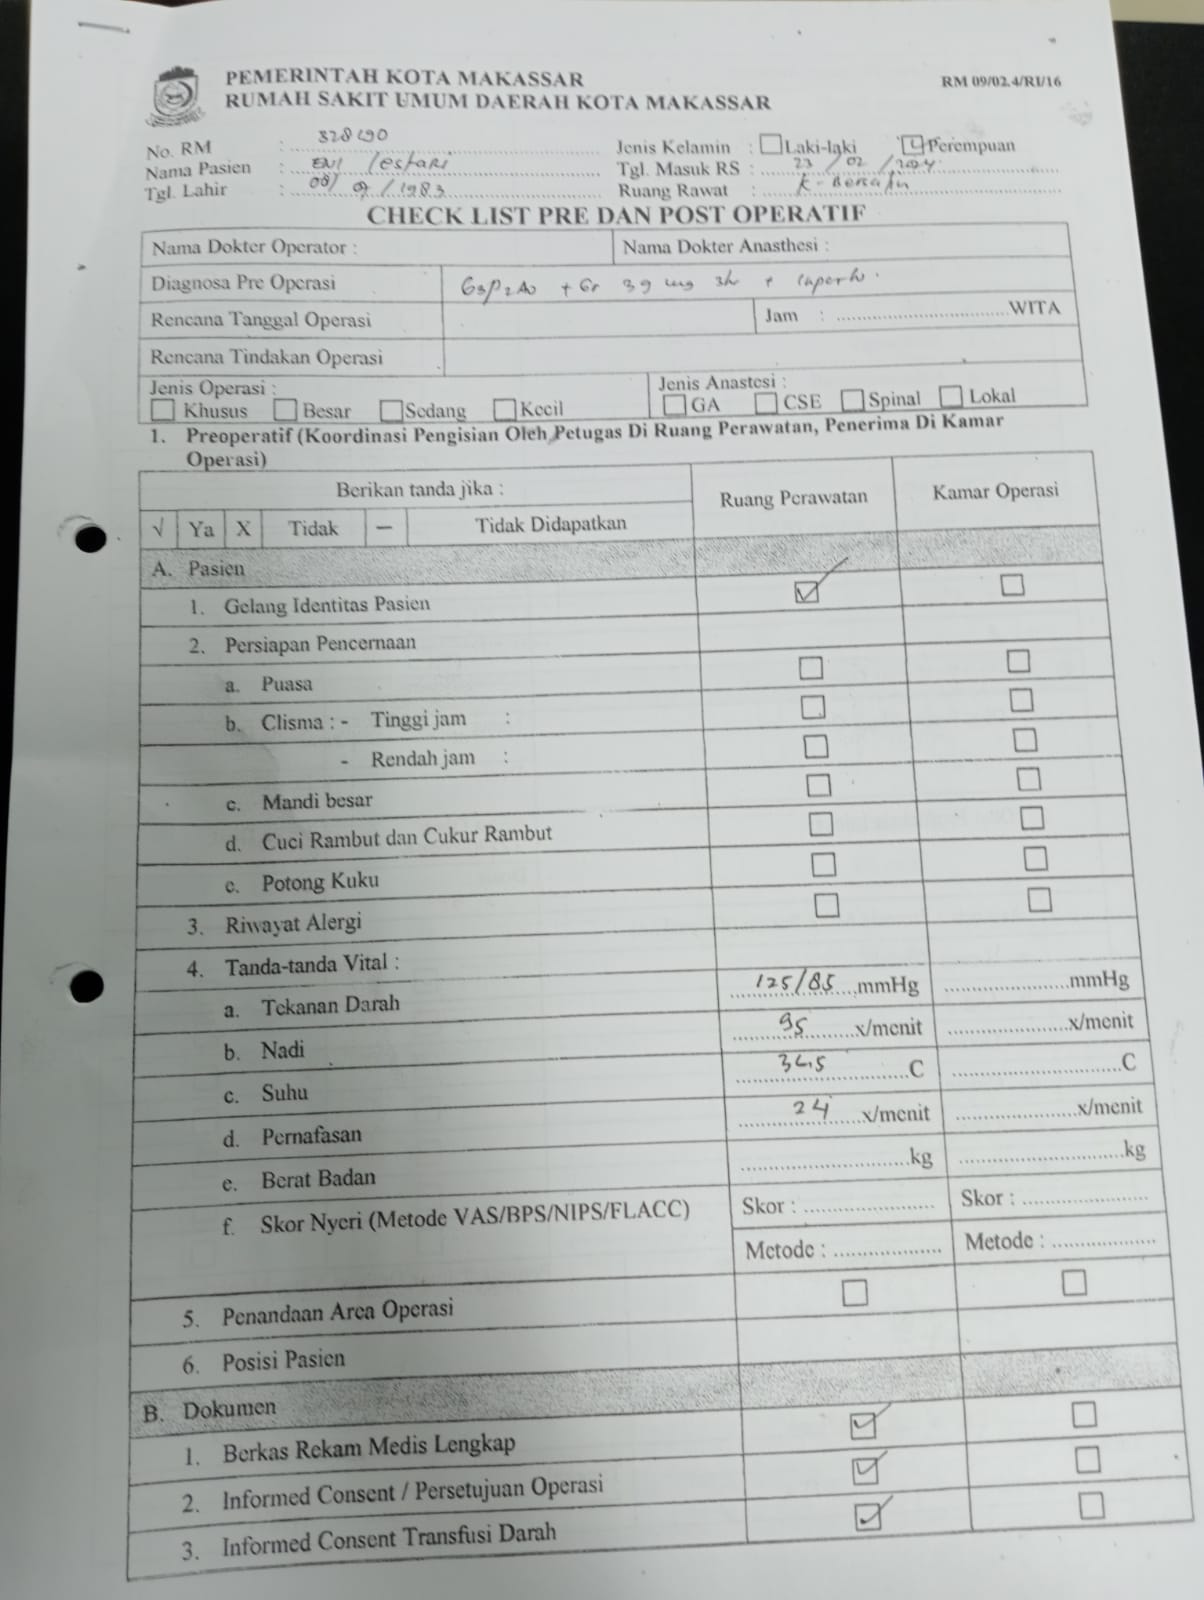 PEMERINTAH KOTA MAKASSAR
RUMAH SAKIT UMUM DAERAH KOTA MAKASSAR
RM 09/02.4/RI/16
No. RM : 
Nama Pasien : ENI Lestari
Tgl. Lahir : 08/ /1983
Jenis Kelamin : Laki-laki Perempuan
Tgl. Masuk RS : 23 / 02 /
Ruang Rawat : K-Bersalin
CHECK LIST PRE DAN POST OPERATIF
Nama Dokter Operator : Nama Dokter Anasthesi :
Diagnosa Pre Operasi G3P2A0 + Gr 39 mg
Rencana Tanggal Operasi Jam : WITA
Rencana Tindakan Operasi
Jenis Operasi : Jenis Anastesi :
Khusus Besar Sedang Kecil GA CSE Spinal Lokal
1. Preoperatif (Koordinasi Pengisian Oleh Petugas Di Ruang Perawatan, Penerima Di Kamar
Operasi)
Berikan tanda jika : Ruang Perawatan Kamar Operasi
√ Ya X Tidak – Tidak Didapatkan
A. Pasien
1. Gelang Identitas Pasien ✓
2. Persiapan Pencernaan
a. Puasa
b. Clisma : - Tinggi jam :
- Rendah jam :
c. Mandi besar
d. Cuci Rambut dan Cukur Rambut
e. Potong Kuku
3. Riwayat Alergi
4. Tanda-tanda Vital :
a. Tekanan Darah 125/85 mmHg mmHg
b. Nadi 95 x/menit x/menit
c. Suhu C C
d. Pernafasan 24 x/menit x/menit
e. Berat Badan kg kg
f. Skor Nyeri (Metode VAS/BPS/NIPS/FLACC) Skor : Skor :
Metode : Metode :
5. Penandaan Area Operasi
6. Posisi Pasien
B. Dokumen
1. Berkas Rekam Medis Lengkap ✓
2. Informed Consent / Persetujuan Operasi ✓
3. Informed Consent Transfusi Darah ✓